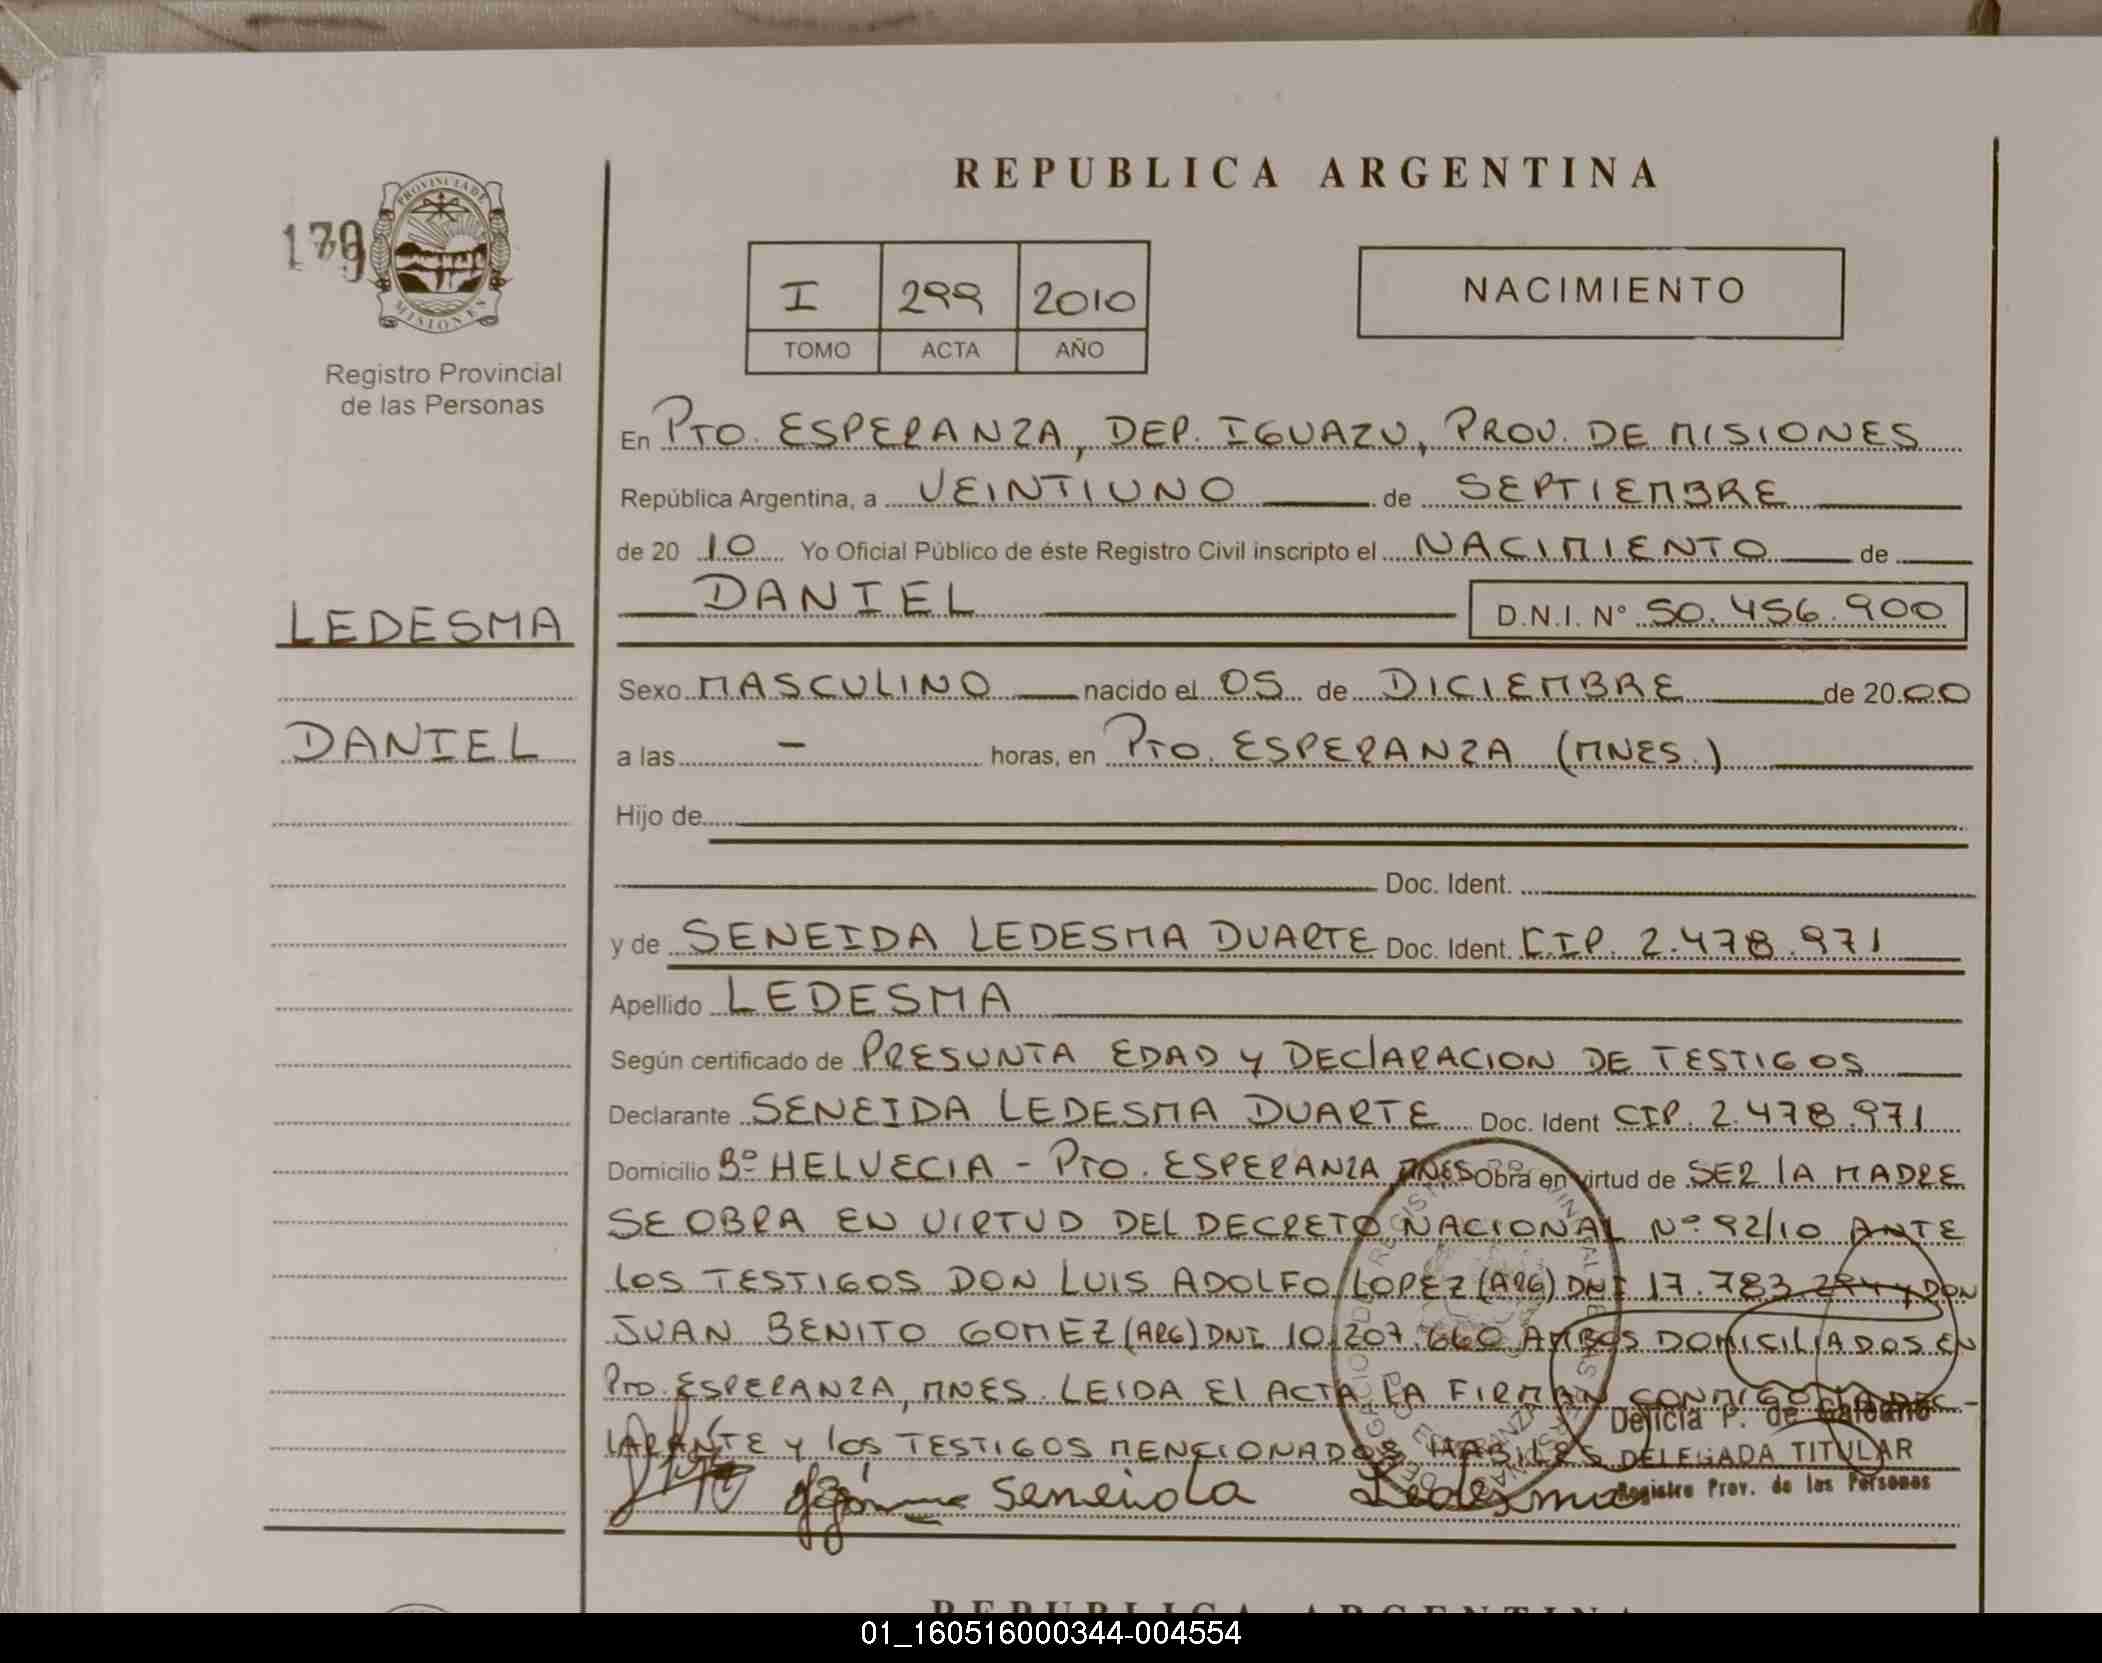 REPUBLICA ARGENTINA
179
PROVINCIA DE
MISIONES
Registro Provincial
de las Personas
I 299 2010
TOMO ACTA AÑO
NACIMIENTO
En PTO. ESPERANZA, DEP. IGUAZU, PROV. DE MISIONES
República Argentina, a VEINTIUNO de SEPTIEMBRE
de 2010 Yo Oficial Público de éste Registro Civil inscripto el NACIMIENTO de
DANIEL D.N.I. Nº 50.456.900
LEDESMA
DANIEL
Sexo MASCULINO nacido el 05 de DICIEMBRE de 2000
a las - horas, en PTO. ESPERANZA (MNES.)
Hijo de
Doc. Ident.
y de SENEIDA LEDESMA DUARTE Doc. Ident. CIP. 2.478.971
Apellido LEDESMA
Según certificado de PRESUNTA EDAD Y DEClARACION DE TESTIGOS
Declarante SENEIDA LEDESMA DUARTE Doc. Ident CIP. 2.478.971
Domicilio Bº HELVECIA - PTO. ESPERANZA MNES Obra en virtud de SER lA MADRE
SE OBRA EN VIRTUD DEL DECRETO NACIONAL Nº 92/10 ANTE
lOS TESTIGOS DON LUIS ADOLFO LOPEZ (ARG) DNI 17.783 Y DON
JUAN BENITO GOMEZ (ARG) DNI 10.207.660 AMBOS DOMICILIADOS EN
PTO. ESPERANZA, MNES. LEIDA El ACTA LA FIRMAN CONMIGO lA DEC-
lARANTE Y lOS TESTIGOS MENCIONADOS HABILES
Delicia P. de Galeano
DELEGADA TITULAR
Registro Prov. de las Personas
Seneida Ledesma
REPUBLICA ARGENTINA
01_160516000344-004554